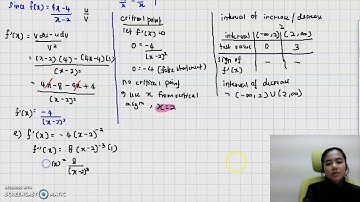 since f(x) = 4x-4 / x-2   u / v
f'(x) = v du - u dv / v²
= (x-2)(4) - (4x-4)(1) / (x-2)²
= 4x - 8 - 4x + 4 / (x-2)²
f'(x) = -4 / (x-2)²
e) f'(x) = -4 (x-2)⁻²
f''(x) = 8 (x-2)⁻³ (1)
(x) = 8 / (x-2)³
critical point
let f'(x) = 0
0 = -4 / (x-2)²
0 = -4 (false statement)
no critical point
use x from vertical
asym, x = 2
interval of increase / decrease
2
interval (-∞, 2) (2, ∞)
test value 0 3
sign of - -
f'(x)
interval of decrease
= (-∞, 2) ∪ (2, ∞)
RECORDED WITH
SCREENCAST MATIC